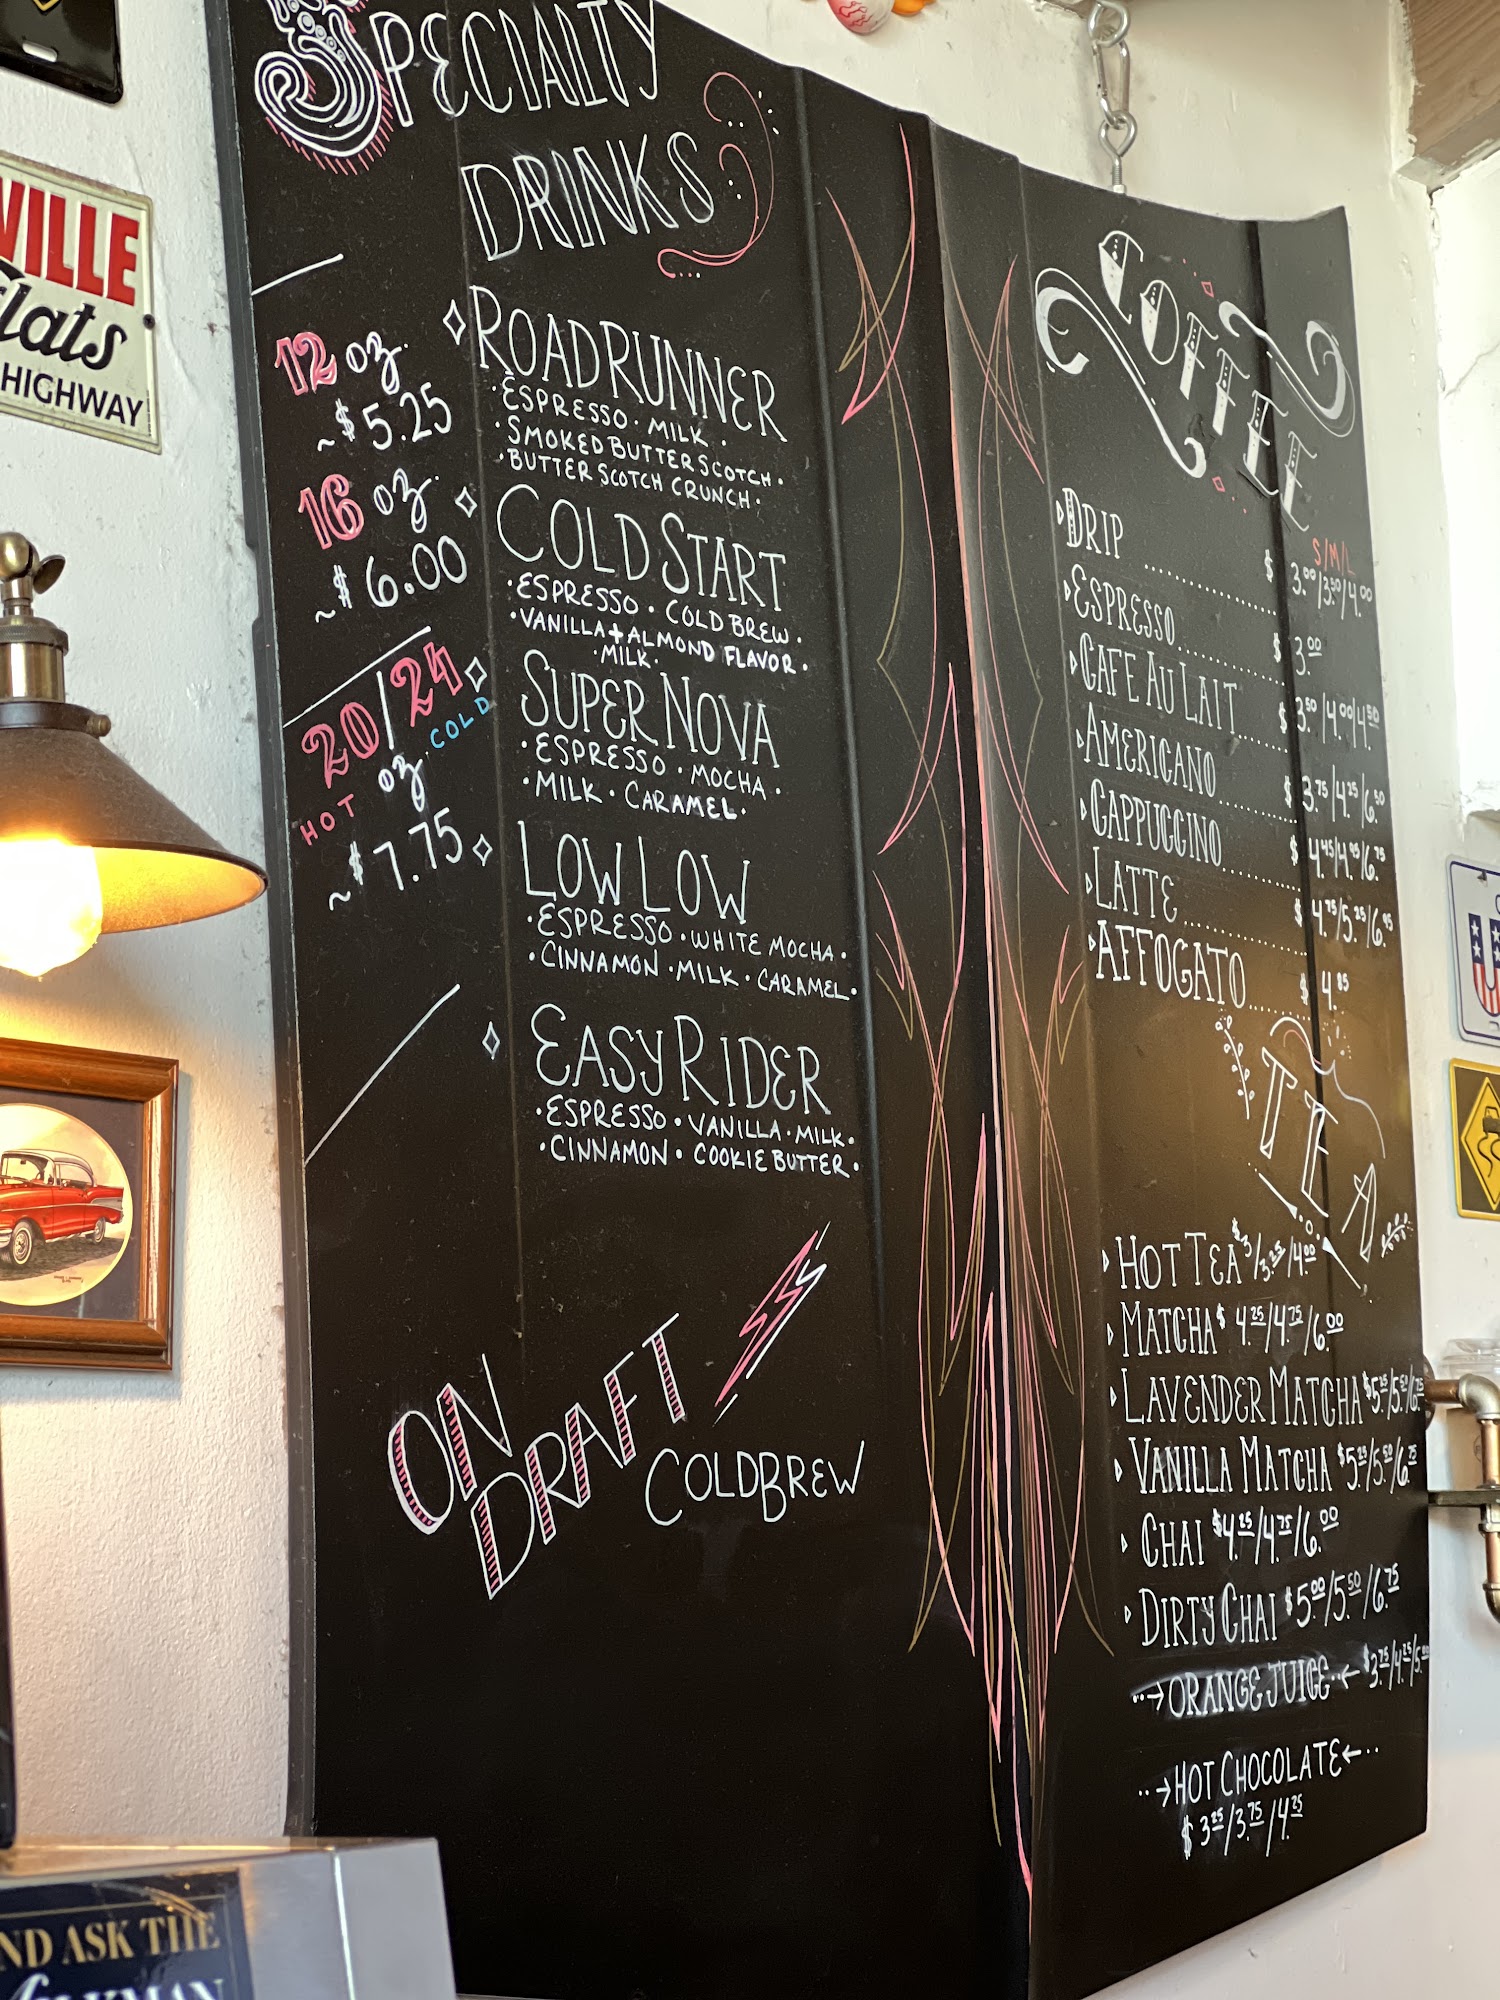 SPECIALTY
DRINKS
12 oz.
~$5.25
16 oz.
~$6.00
20/24
HOT oz. COLD
~$7.75
ROADRUNNER
·ESPRESSO·MILK·
·SMOKED BUTTERSCOTCH·
·BUTTERSCOTCH CRUNCH·
COLD START
·ESPRESSO·COLD BREW·
·VANILLA+ALMOND FLAVOR·
·MILK·
SUPER NOVA
·ESPRESSO·MOCHA·
·MILK·CARAMEL·
LOW LOW
·ESPRESSO·WHITE MOCHA·
·CINNAMON·MILK·CARAMEL·
EASY RIDER
·ESPRESSO·VANILLA·MILK·
·CINNAMON·COOKIE BUTTER·
ON
DRAFT
COLDBREW
COFFEE
S/M/L
DRIP..............$3.00/3.50/4.00
ESPRESSO..........$3.00
CAFE AU LAIT......$3.50/4.00/4.50
AMERICANO.........$3.75/4.25/6.50
CAPPUCCINO........$4.45/4.95/6.75
LATTE.............$4.75/5.25/6.95
AFFOGATO....$4.85
TEA
HOT TEA $3/3.25/4.00
MATCHA $4.25/4.75/6.00
LAVENDER MATCHA $5.25/5.50/6.75
VANILLA MATCHA $5.25/5.50/6.75
CHAI $4.25/4.75/6.00
DIRTY CHAI $5.00/5.50/6.75
··→ORANGE JUICE··← $3.75/4.25/5.00
··→HOT CHOCOLATE←··
$3.25/3.75/4.25
VILLE
flats
HIGHWAY
U
ND ASK THE